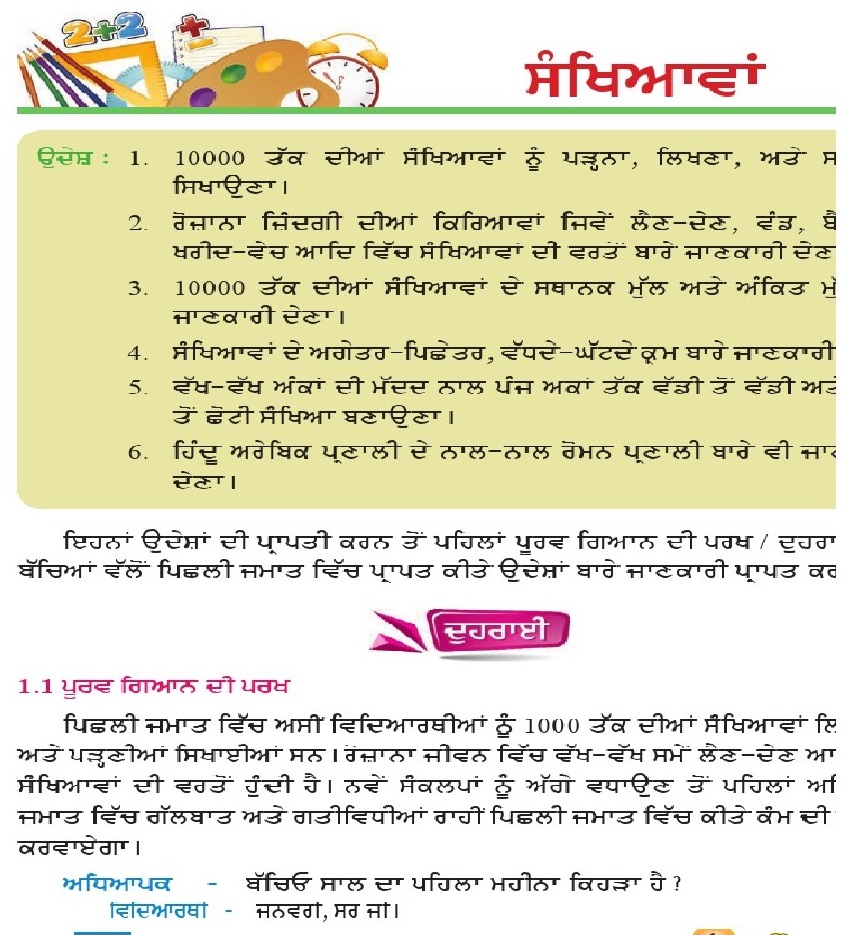 2+2
ਸੰਖਿਆਵਾਂ
ਉਦੇਸ਼ : 1. 10000 ਤੱਕ ਦੀਆਂ ਸੰਖਿਆਵਾਂ ਨੂੰ ਪੜ੍ਹਨਾ, ਲਿਖਣਾ, ਅਤੇ
ਸਿਖਾਉਣਾ।
2. ਰੋਜ਼ਾਨਾ ਜ਼ਿੰਦਗੀ ਦੀਆਂ ਕਿਰਿਆਵਾਂ ਜਿਵੇਂ ਲੈਣ-ਦੇਣ, ਵੰਡ,
ਖਰੀਦ-ਵੇਚ ਆਦਿ ਵਿੱਚ ਸੰਖਿਆਵਾਂ ਦੀ ਵਰਤੋਂ ਬਾਰੇ ਜਾਣਕਾਰੀ ਦੇਣਾ
3. 10000 ਤੱਕ ਦੀਆਂ ਸੰਖਿਆਵਾਂ ਦੇ ਸਥਾਨਕ ਮੁੱਲ ਅਤੇ ਅੰਕਿਤ
ਜਾਣਕਾਰੀ ਦੇਣਾ।
4. ਸੰਖਿਆਵਾਂ ਦੇ ਅਗੇਤਰ-ਪਿਛੇਤਰ, ਵੱਧਦੇ-ਘੱਟਦੇ ਕ੍ਰਮ ਬਾਰੇ ਜਾਣਕਾਰੀ
5. ਵੱਖ-ਵੱਖ ਅੰਕਾਂ ਦੀ ਮੱਦਦ ਨਾਲ ਪੰਜ ਅਕਾਂ ਤੱਕ ਵੱਡੀ ਤੋਂ ਵੱਡੀ
ਤੋਂ ਛੋਟੀ ਸੰਖਿਆ ਬਣਾਉਣਾ।
6. ਹਿੰਦੂ ਅਰੇਬਿਕ ਪ੍ਰਣਾਲੀ ਦੇ ਨਾਲ-ਨਾਲ ਰੋਮਨ ਪ੍ਰਣਾਲੀ ਬਾਰੇ ਵੀ
ਦੇਣਾ।
ਇਹਨਾਂ ਉਦੇਸ਼ਾਂ ਦੀ ਪ੍ਰਾਪਤੀ ਕਰਨ ਤੋਂ ਪਹਿਲਾਂ ਪੂਰਵ ਗਿਆਨ ਦੀ ਪਰਖ / ਦੁਹਰਾ
ਬੱਚਿਆਂ ਵੱਲੋਂ ਪਿਛਲੀ ਜਮਾਤ ਵਿੱਚ ਪ੍ਰਾਪਤ ਕੀਤੇ ਉਦੇਸ਼ਾਂ ਬਾਰੇ ਜਾਣਕਾਰੀ ਪ੍ਰਾਪਤ
ਦੁਹਰਾਈ
1.1 ਪੂਰਵ ਗਿਆਨ ਦੀ ਪਰਖ
ਪਿਛਲੀ ਜਮਾਤ ਵਿੱਚ ਅਸੀਂ ਵਿਦਿਆਰਥੀਆਂ ਨੂੰ 1000 ਤੱਕ ਦੀਆਂ ਸੰਖਿਆਵਾਂ ਲਿ
ਅਤੇ ਪੜ੍ਹਣੀਆਂ ਸਿਖਾਈਆਂ ਸਨ। ਰੋਜ਼ਾਨਾ ਜੀਵਨ ਵਿੱਚ ਵੱਖ-ਵੱਖ ਸਮੇਂ ਲੈਣ-ਦੇਣ ਆ
ਸੰਖਿਆਵਾਂ ਦੀ ਵਰਤੋਂ ਹੁੰਦੀ ਹੈ। ਨਵੇਂ ਸੰਕਲਪਾਂ ਨੂੰ ਅੱਗੇ ਵਧਾਉਣ ਤੋਂ ਪਹਿਲਾਂ
ਜਮਾਤ ਵਿੱਚ ਗੱਲਬਾਤ ਅਤੇ ਗਤੀਵਿਧੀਆਂ ਰਾਹੀਂ ਪਿਛਲੀ ਜਮਾਤ ਵਿੱਚ ਕੀਤੇ ਕੰਮ ਦੀ
ਕਰਵਾਏਗਾ।
ਅਧਿਆਪਕ - ਬੱਚਿਓ ਸਾਲ ਦਾ ਪਹਿਲਾ ਮਹੀਨਾ ਕਿਹੜਾ ਹੈ ?
ਵਿਦਿਆਰਥੀ - ਜਨਵਰੀ, ਸਰ ਜੀ।